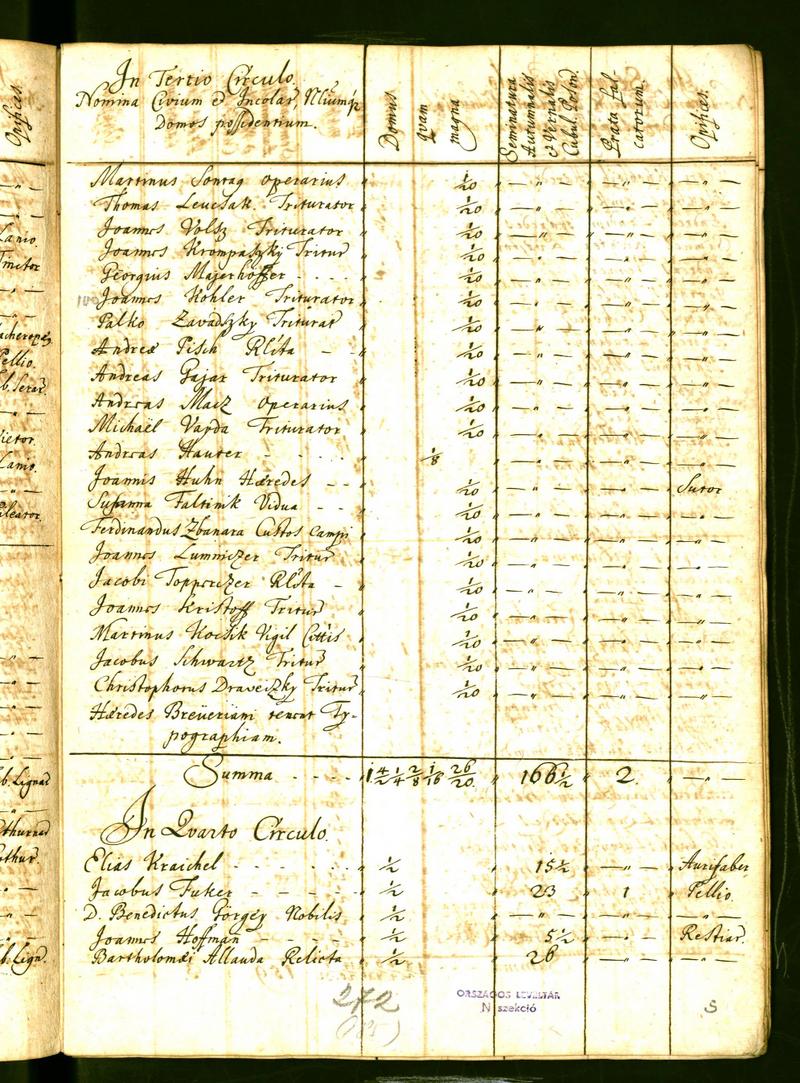 In Tertio Circulo.
Nomina Civium et Incolar
Domos possidentium.
Domus
Quam
magna
Seminatura
Autumnalis
et Vernalis
Cubul. Poson.
Prata fal
catorum.
Opifices.
Martinus Sontag Operarius " 1/20 " — " — " — " — " — " —
Thomas Leucsak Triturator " 1/20 " — " — " — " — " — " —
Joannes Volsz Triturator " 1/20 " — " — " — " — " — " —
Joannes Krompaszky Tritur " 1/20 " — " — " — " — " — " —
Georgius Majerhöffer - - - - " 1/20 " — " — " — " — " — " —
Joannes Kohler Triturator " 1/20 " — " — " — " — " — " —
Palko Zavadszky Triturat " 1/20 " — " — " — " — " — " —
Andreæ Pisch Rlita - - " 1/20 " — " — " — " — " — " —
Andreas Gajar Triturator " 1/20 " — " — " — " — " — " —
Andreas Macz Operarius " 1/20 " — " — " — " — " — " —
Michaël Varda Triturator " 1/20 " — " — " — " — " — " —
Andreas Hauter - - - - - " 1/8 " — " — " — " — " — " —
Joannis Huhn Hæredes - - " 1/20 " — " — " — " — " Sutor
Susanna Faltinik Vidua - - " 1/20 " — " — " — " — " — " —
Ferdinandus Zbanara Custos Campi " 1/20 " — " — " — " — " — " —
Joannes Lumniczer Tritur " 1/20 " — " — " — " — " — " —
Jacobi Topperczer Rlita - " 1/20 " — " — " — " — " — " —
Joannes Kristoff Tritur " 1/20 " — " — " — " — " — " —
Martinus Kocsik Vigil Cittis " 1/20 " — " — " — " — " — " —
Jacobus Schwartz Tritur " 1/20 " — " — " — " — " — " —
Christophorus Draveczky Tritur " 1/20 " — " — " — " — " — " —
Hæredes Breüeriani tenent Ty-
pographiam.
Summa - - - - " 1 4/2 1/4 2/8 1/16 26/20 " 166 1/2 " 2. " — " —
In Qvarto Circulo.
Elias Kraichel - - - - - 1/2 " 15 1/2 " — " — " Aurifaber
Jacobus Fuker - - - - 1/2 " 23 " 1 " Pellio.
D. Benedictus Görgey Nobilis 1/2 " — " — " — " — " — " —
Joannes Hoffman - - - - 1/2 " 5 1/2 " — " — " Restiar.
Bartholomæi Allauda Relicta 1/2 " 26 " — " — " — " —
272
(185)
ORSZÁGOS LEVÉLTÁR
N szekció
S